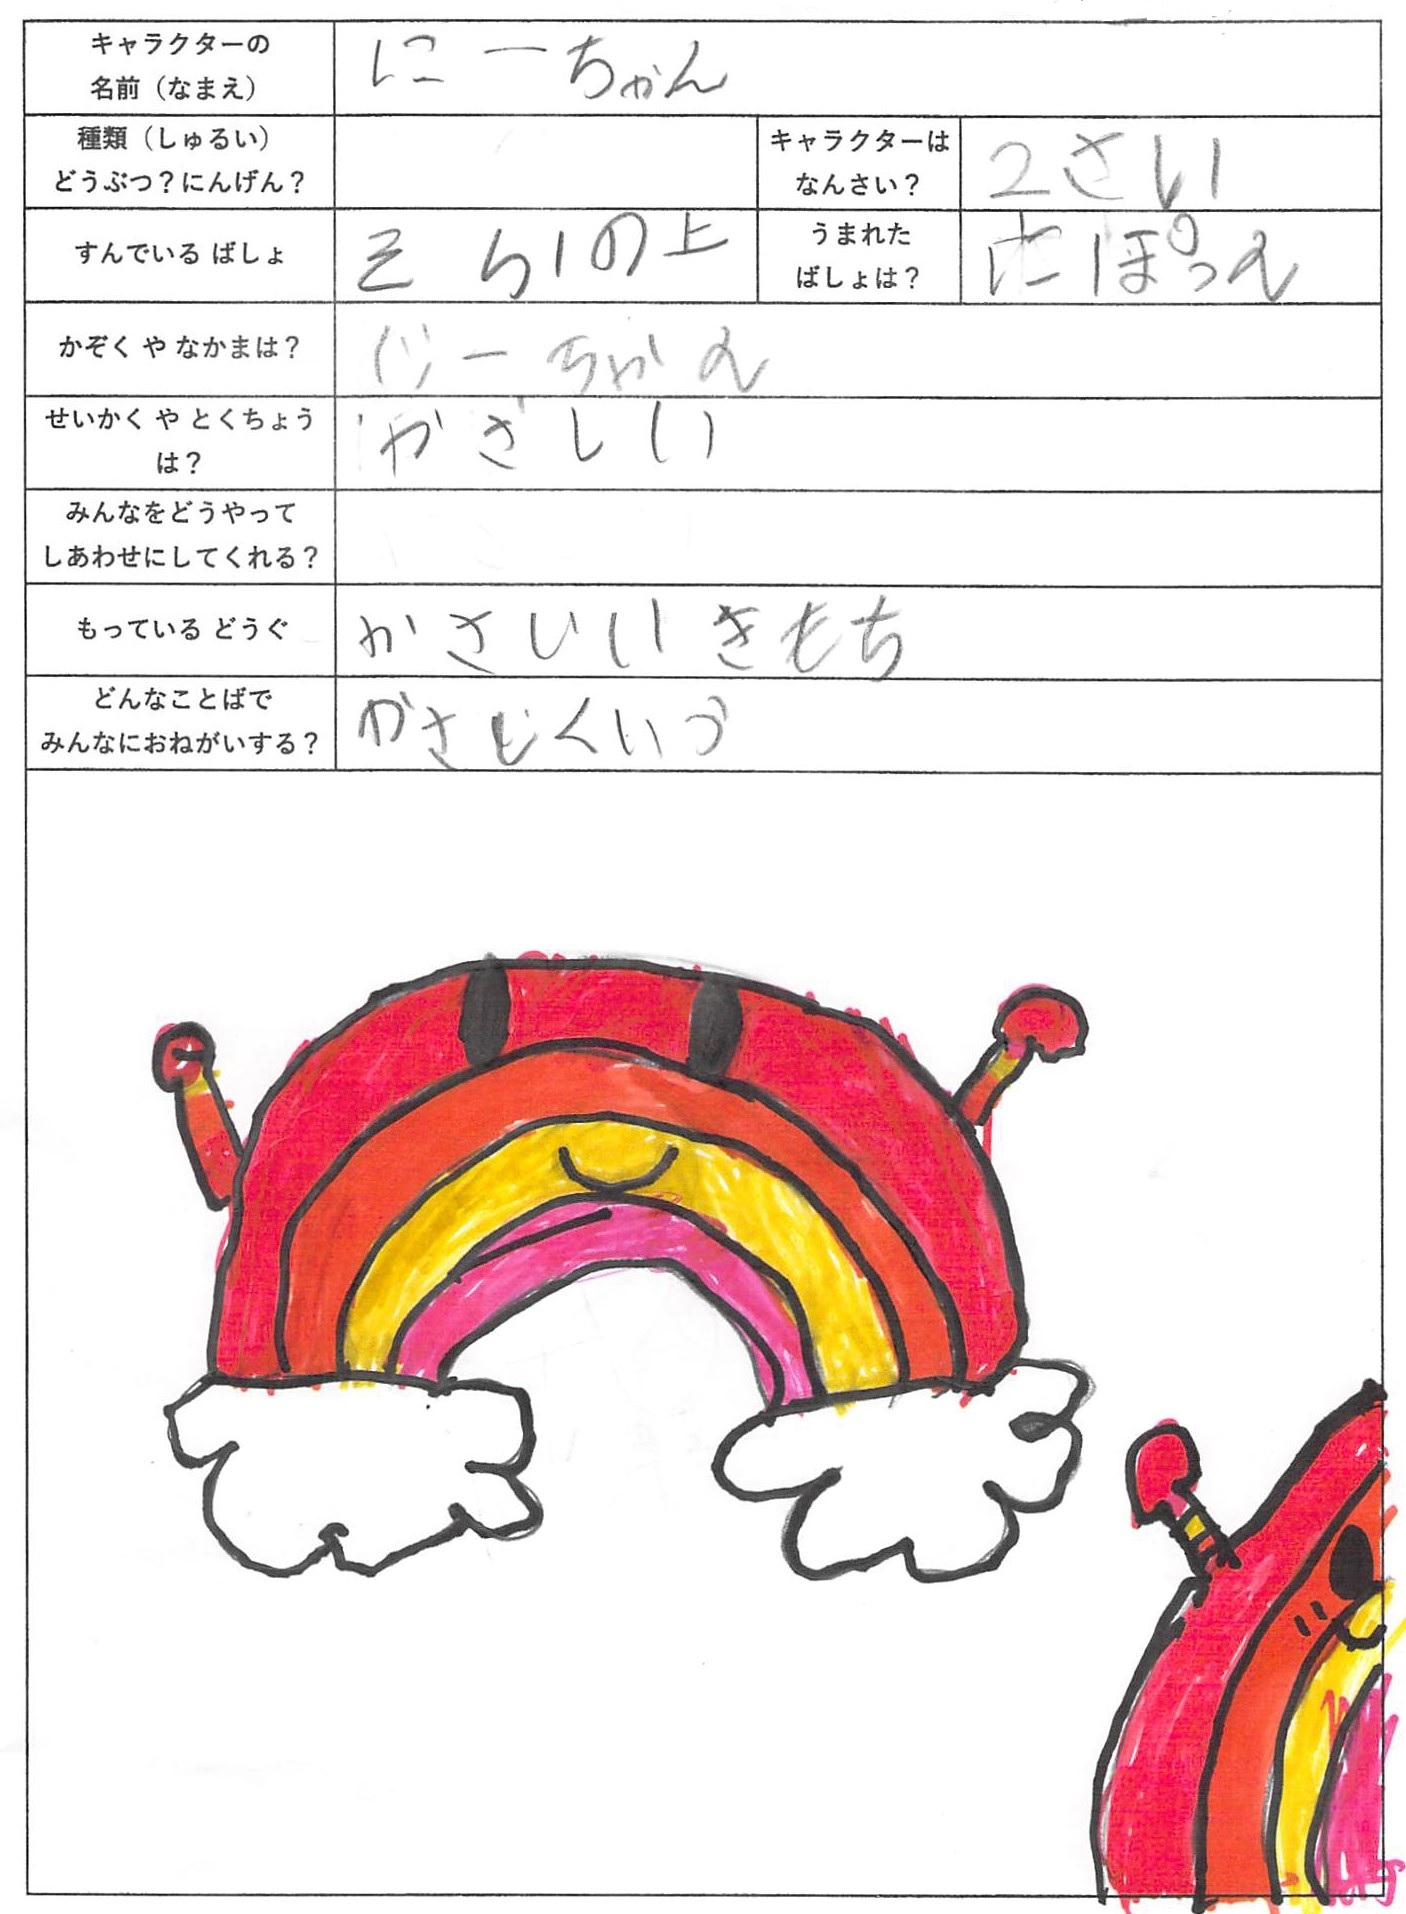 キャラクターの
名前（なまえ）
にーちゃん
種類（しゅるい）
どうぶつ？にんげん？
キャラクターは
なんさい？
2さい
すんでいる ばしょ
そらの上
うまれた
ばしょは？
にほぽっん
かぞく や なかまは？
じーちゃん
せいかく や とくちょう
は？
やさしい
みんなをどうやって
しあわせにしてくれる？
もっている どうぐ
やさしいきもち
どんなことばで
みんなにおねがいする？
やさしくいう